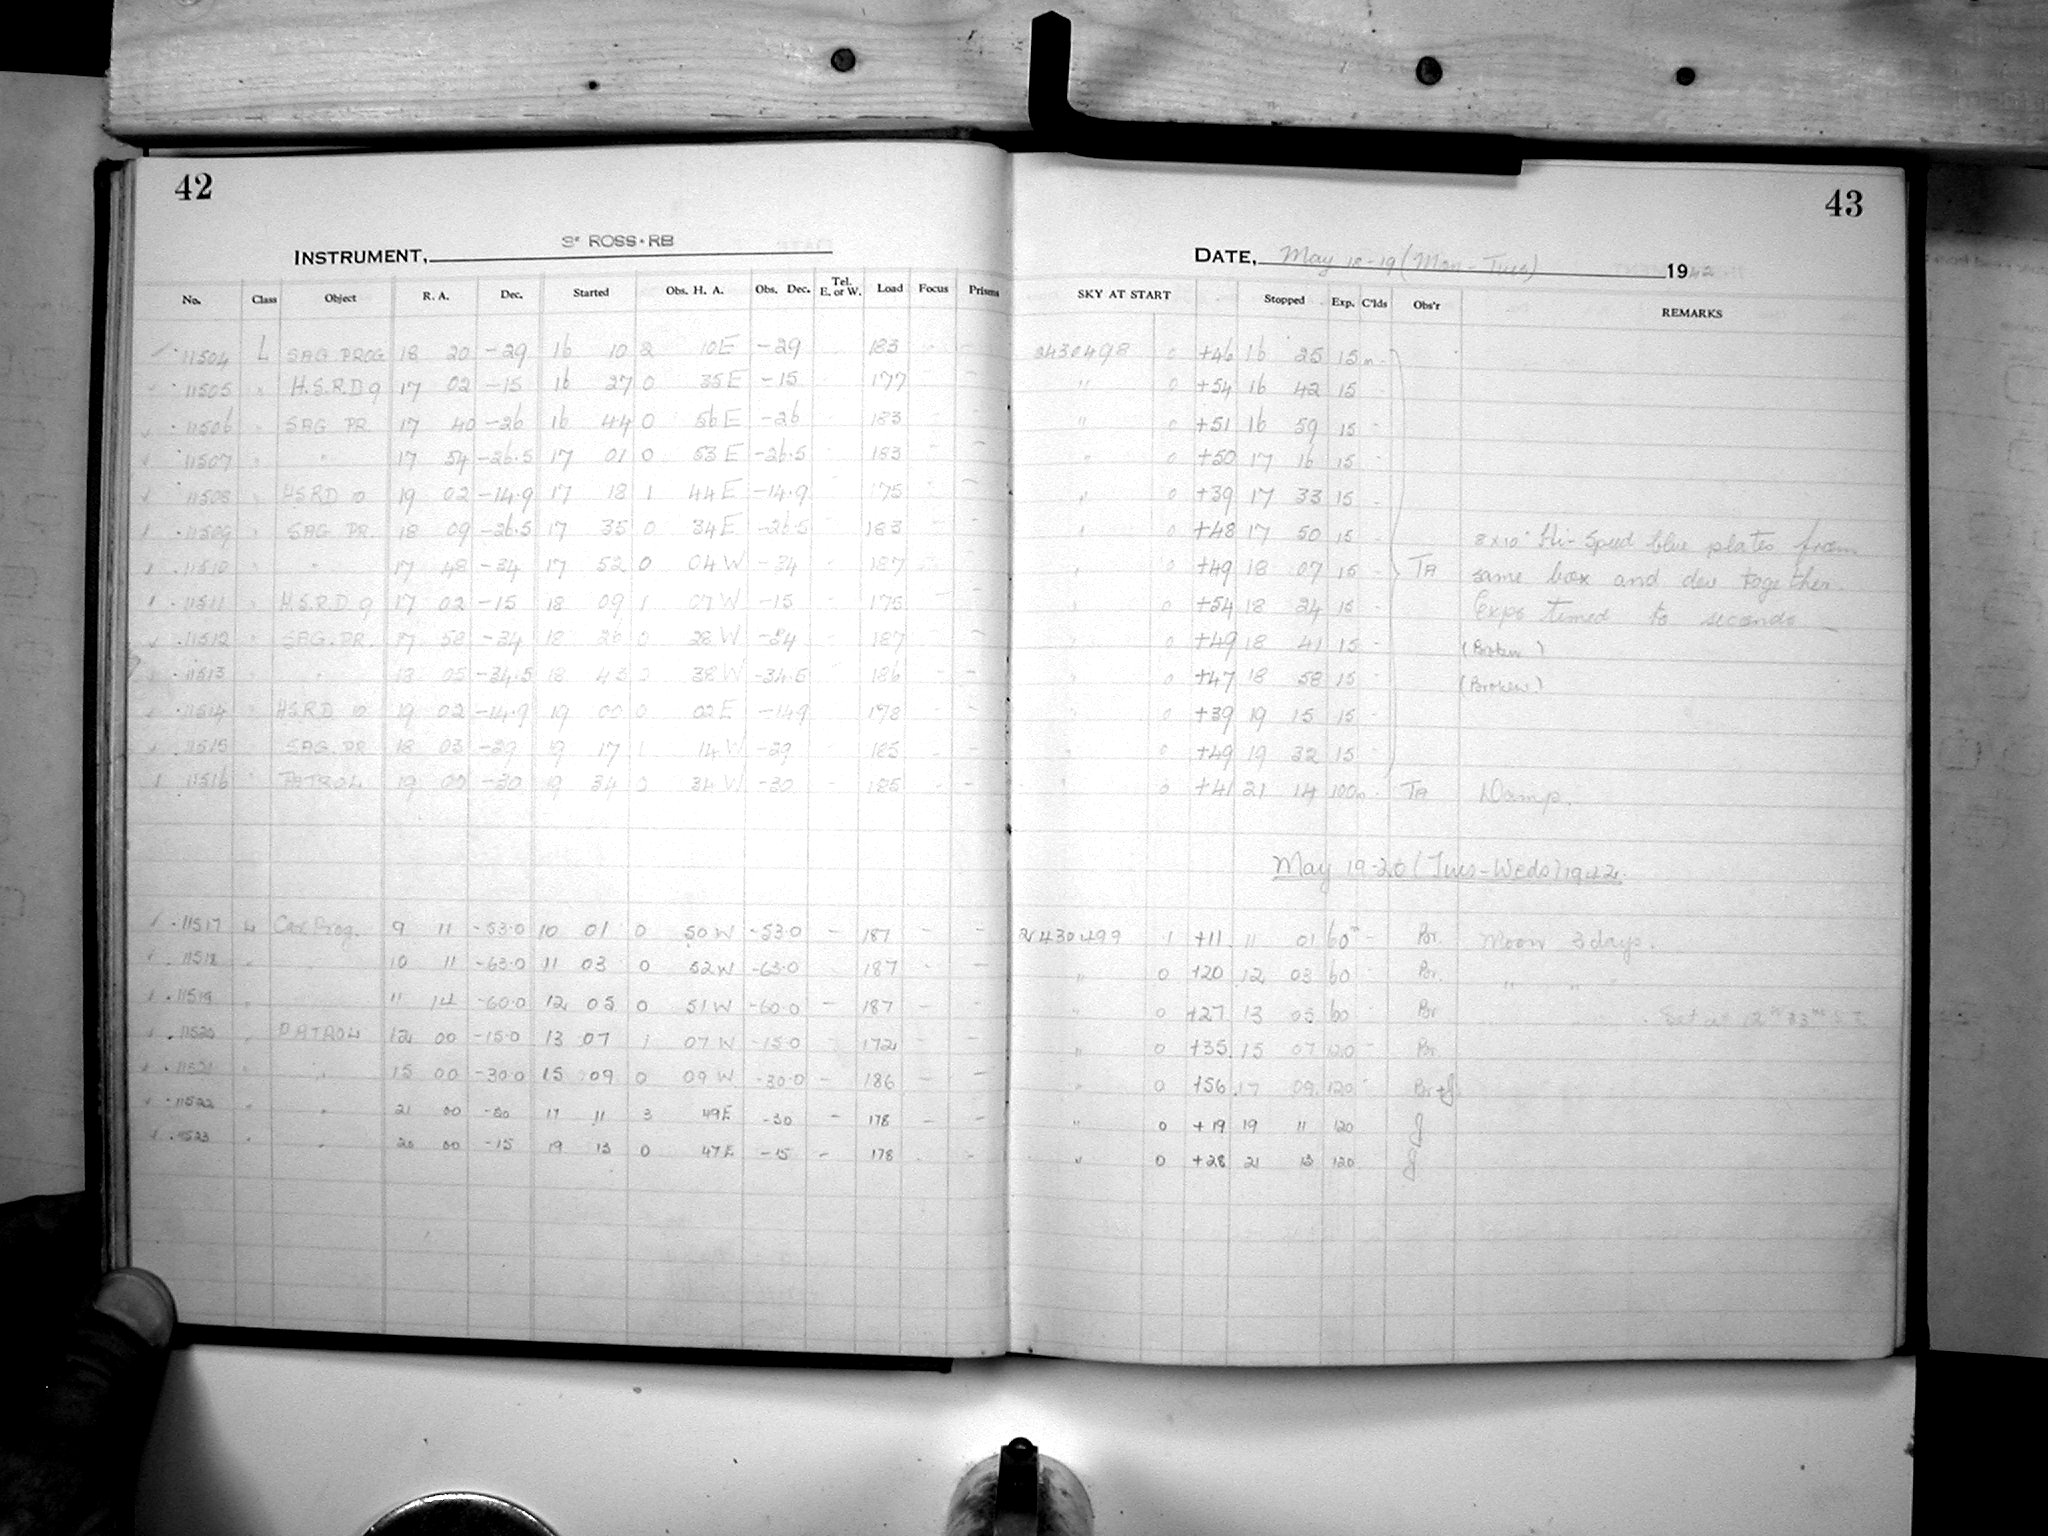 42
43
INSTRUMENT, 3" ROSS-RB
DATE, May 18-19 (Mon-Tues) 1942
No. Class Object R. A. Dec. Started Obs. H. A. Obs. Dec. Tel. E. or W. Load Focus Prisms SKY AT START Stopped Exp. C'lds Obs'r REMARKS
11504 L SAG PROG 18 20 -29 16 10 2 10E -29 183 - - 2430498 0 +46 16 25 15m -
11505 " H.S.R.D 9 17 02 -15 16 27 0 35E -15 177 - - " 0 +54 16 42 15
11506 " SAG PR. 17 40 -26 16 44 0 56E -26 183 - - " 0 +51 16 59 15 -
11507 " " 17 54 -26.5 17 01 0 53E -26.5 183 - - " 0 +50 17 16 15 -
11508 " H.S.R.D 10 19 02 -14.9 17 18 1 44E -14.9 175 - - " 0 +39 17 33 15 -
11509 " SAG PR. 18 09 -26.5 17 35 0 34E -26.5 183 - - " 0 +48 17 50 15 - 8x10" Hi-Speed blue plates from
11510 " " 17 48 -34 17 52 0 04W -34 187 - - " 0 +49 18 07 15 - TA same box and dev together.
11511 " H.S.R.D 9 17 02 -15 18 09 1 07W -15 175 - - " 0 +54 18 24 15 - Exps timed to seconds
11512 " SAG. PR. 17 58 -34 18 26 0 28W -34 187 - - " 0 +49 18 41 15 - (Broken)
11513 " " 18 05 -34.5 18 43 0 38W -34.5 186 - - " 0 +47 18 58 15 - (Broken)
11514 " H.S.R.D 10 19 02 -14.9 19 00 0 02E -14.9 178 - - " 0 +39 19 15 15 -
11515 " SAG. PR 18 03 -29 19 17 1 14W -29 185 - - " 0 +49 19 32 15 -
11516 " PATROL 19 00 -30 19 34 0 34W -30 185 - - " 0 +41 21 14 100m - TA Damp.
May 19-20 (Tues-Weds) 1942.
11517 L Car Prog. 9 11 -53.0 10 01 0 50W -53.0 - 187 - - 2430499 1 +11 11 01 60m - Br. Moon 3 days.
11518 " " 10 11 -63.0 11 03 0 52W -63.0 187 - - " 0 +20 12 03 60 Br. " " "
11519 " 11 14 -60.0 12 05 0 51W -60.0 - 187 - - " 0 +27 13 05 60 Br Set at
11520 " PATROL 12 00 -15.0 13 07 1 07W -15.0 - 172 - - " 0 +35 15 07 120 - Br.
11521 " " 15 00 -30.0 15 09 0 09W -30.0 - 186 - - " 0 +56 17 09 120 - Br+J
11522 " " 21 00 -30 17 11 3 49E -30 - 178 - - " 0 +19 19 11 120 J
11523 " " 20 00 -15 19 13 0 47E -15 - 178 - - " 0 +28 21 13 120 J